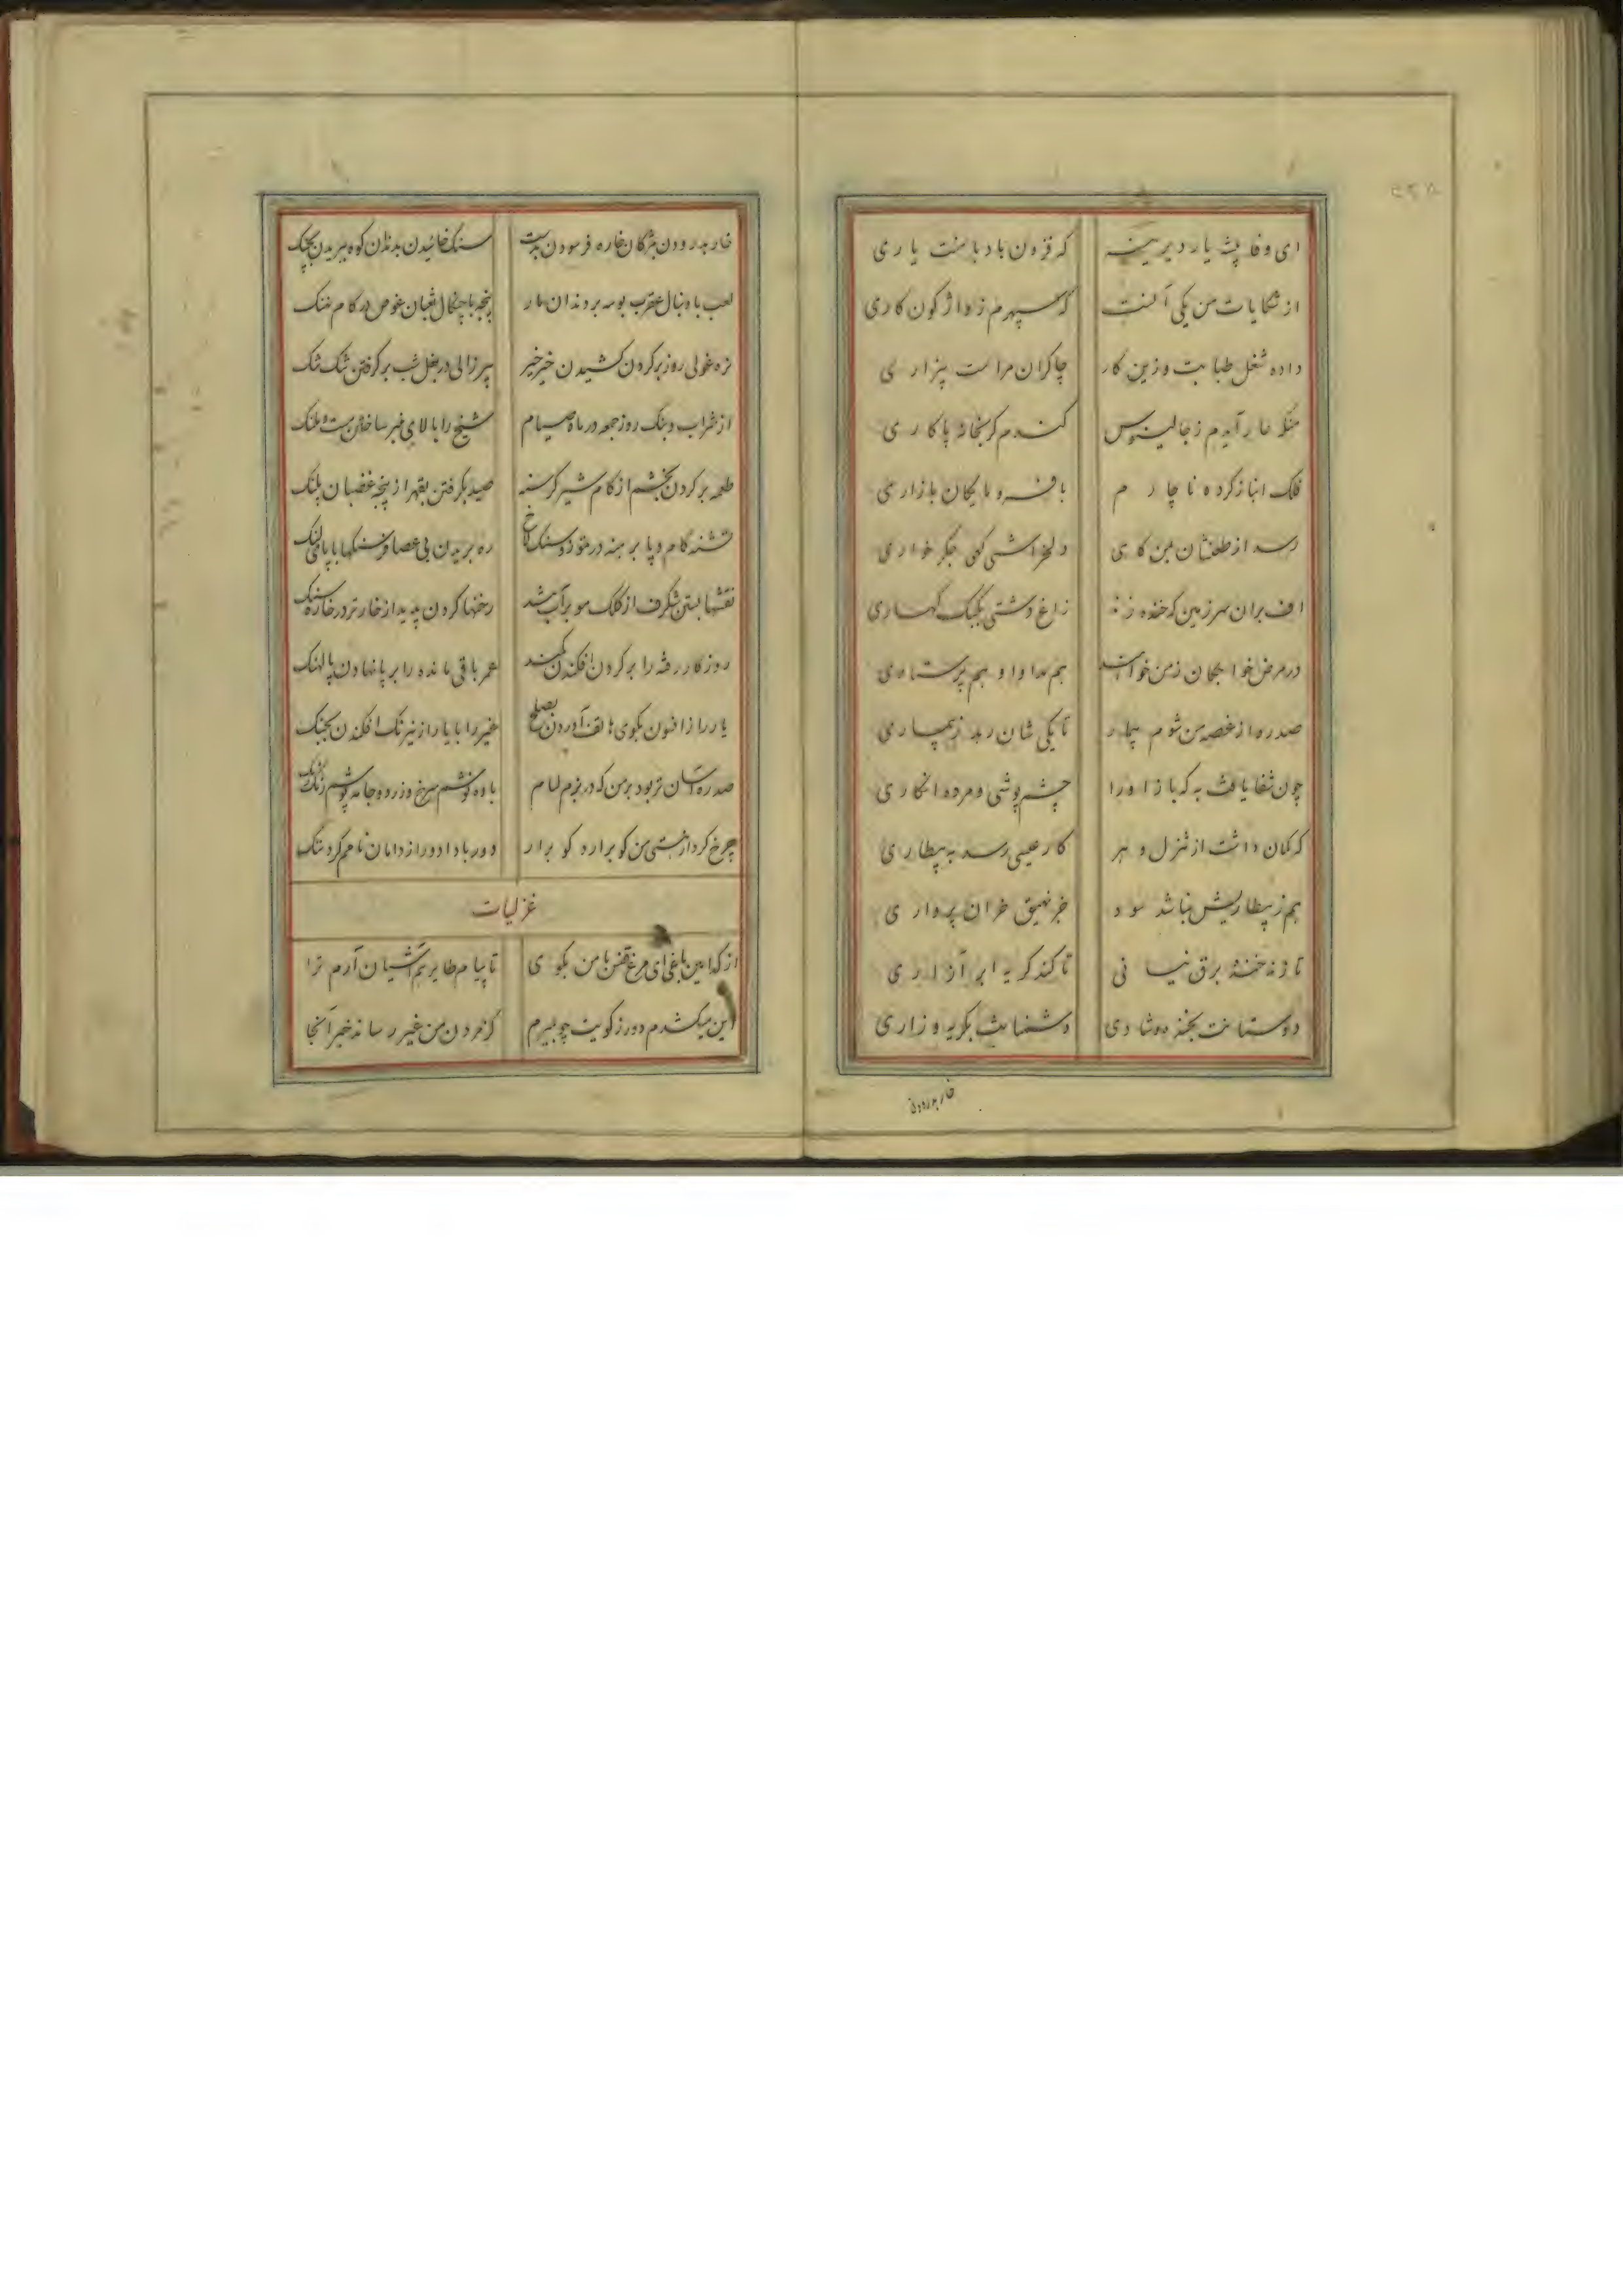 ای وفا پیشه یار دیرینه که فزون باد با منت یاری
از شکایات من یکی آنست که سپهرم ز واژگون کاری
داده شغل طبابت و زین کار چاکران مراست بیزاری
من که عار آیدم ز جالینوس کندم گر بخانه پاکاری
فلک انباز کرده ناچارم با فرومایگان بازاری
رسد از طعنشان بمن گاهی دلخراشی گهی جگر خواری
اف بران سرزمین که خنده زند زاغ دشتی بکبک کهساری
در مرض خواجگان ز من خواهند هم مداوا و هم پرستاری
صد ره از غصه من شوم بیمار تا یکی شان رهد ز بیماری
چون شفا یافت به که باز او را چشم پوشی و مرده انکاری
که گمان داشت از تنزل دهر کار عیسی رسد به بیطاری
هم ز بیطاریش نباشد سود جز نهیق خران پرواری
تا زند خنده برق نیسانی تا کند گریه ابر آزاری
دوستانت بخنده و شادی دشمنانت بگریه و زاری
خار بدرودن
خار بدرودن بمژگان خاره فرسودن بدست سنک خائیدن بدندان کوه ببریدن بچنک
لعب با دنبال عقرب بوسه بر دندان مار پنجه با چنگال ثعبان غوص در کام نهنک
نره غولی روز بر گردن کشیدن خیر خیر پیر زالی در بغل شب بر گرفتن تنک تنک
از شراب و بنک روز جمعه در ماه صیام شیخ را بالای منبر ساختن مست و ملنک
طعمه بر کردن بخشم از کام شیر گرسنه صید بگرفتن بقهر از پنجه غضبان پلنک
تشنه کام و پا برهنه در تموز و سنک لاخ ره بریدن بی عصا فرسنکها با پای لنک
نقشها بستن شگرف از کلک مو بر آب تند رخنها کردن پدید از خار تر در خاره سنک
روزگار رفته را بر گردن افکندن کمند عمر باقی مانده را بر پا نهادن پالهنک
یار را ز افسون بکوی هالف آوردن بصلح غیر را با یار از نیرنک افکندن بجنک
صد ره آسان تر بود بر من که در بزم لئام باده نوشم سرخ و زرد و جامه پوشم رنک رنک
چرخ گرد از هستی من گو برآرد گو برآر دور بادا دور از دامان نامم گرد ننک
غزلیات
از کدامین باغی ای مرغ قفس با من بکوی تا پیام طایر هم آشیان آرم ترا
این میکشدم دور ز کویت چو بمیرم کز مردن من غیر رساند خبر آنجا